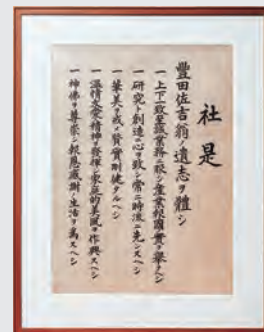 社是
豐田佐吉翁ノ遺志ヲ體シ
一 上下一致至誠業務ニ服シ產業報國ノ實ヲ擧クヘシ
一 研究ト創造ニ心ヲ致シ常ニ時流ニ先ンスヘシ
一 華美ヲ戒メ質實剛健タルヘシ
一 溫情友愛ノ精神ヲ發揮シ家庭的美風ヲ作興スヘシ
一 神佛ヲ尊崇シ報恩感謝ノ生活ヲ爲スヘシ